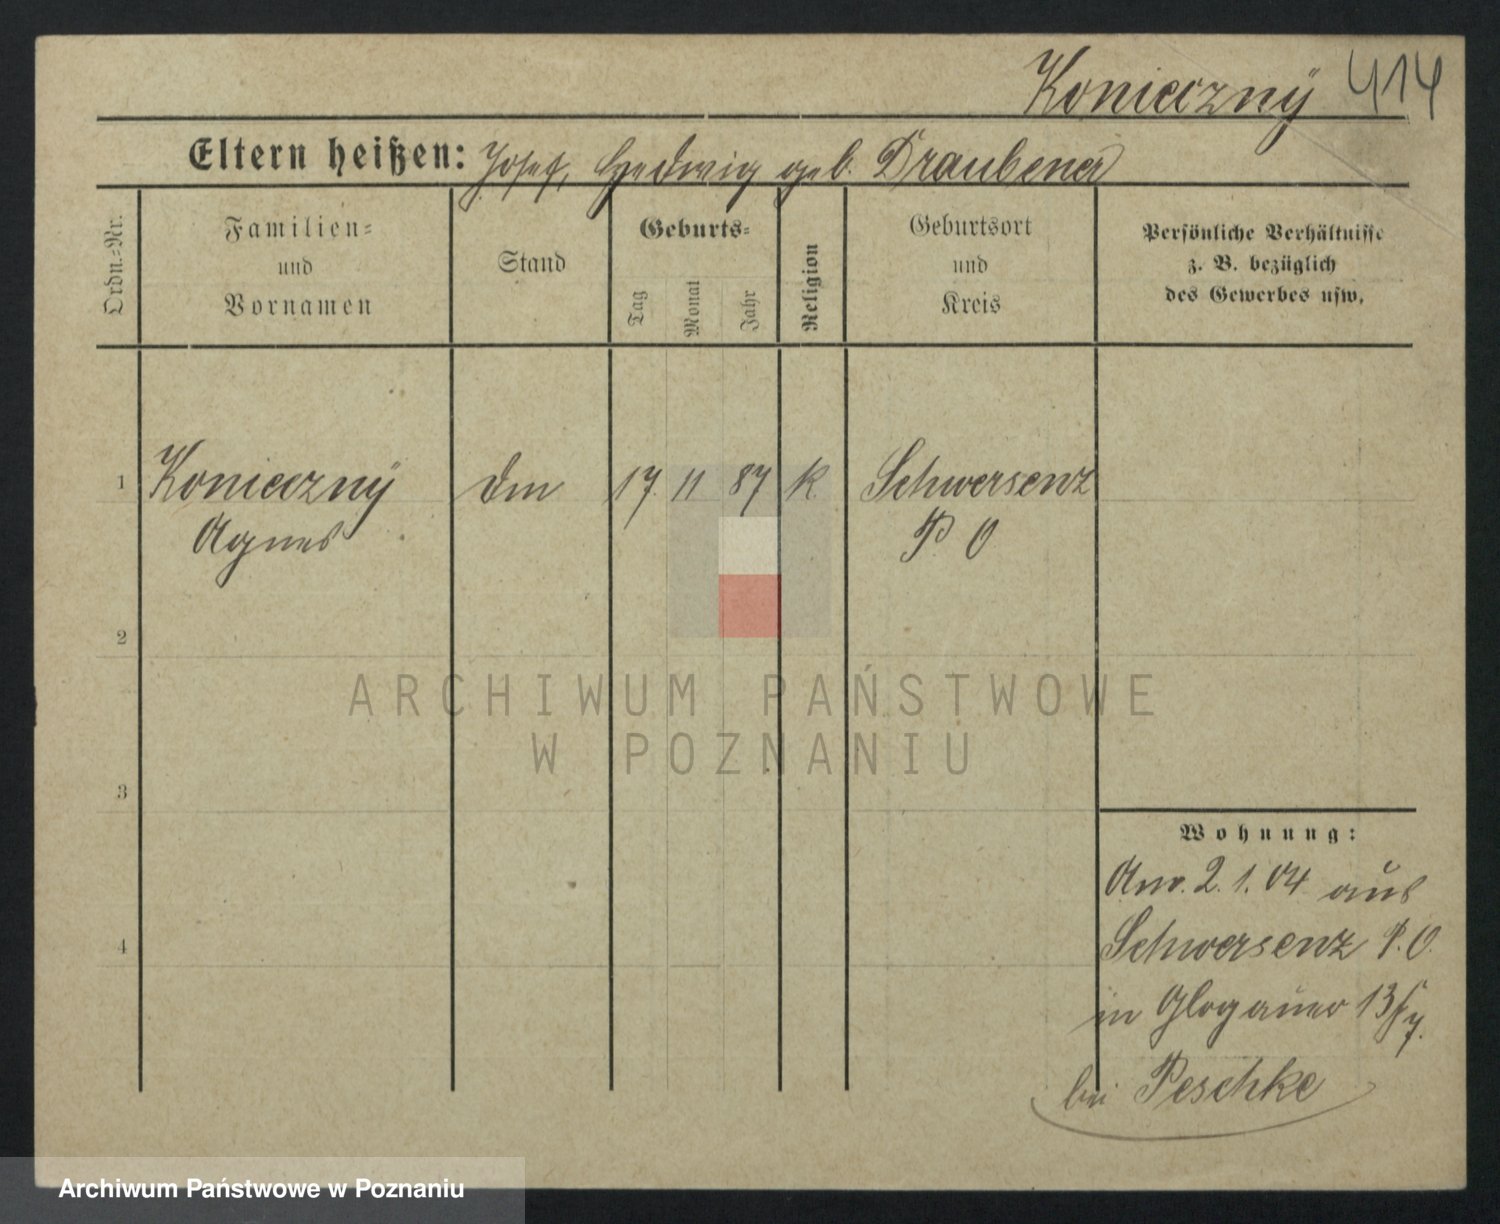 Konieczny 414
Eltern heißen: Josef, Hedwig geb. Draubener
Ordn.-Nr.
Familien-
und
Vornamen
Stand
Geburts-
Tag
Monat
Jahr
Religion
Geburtsort
und
Kreis
Persönliche Verhältnisse
z. B. bezüglich
des Gewerbes usw.
1 Konieczny dm 17. 11 87 k. Schwersenz
Agnes P. O
2
3
4
Wohnung:
Anv. 2. 1. 04 aus
Schwersenz P. O.
in Glogauer 13
bei Peschke
ARCHIWUM PAŃSTWOWE
W POZNANIU
Archiwum Państwowe w Poznaniu